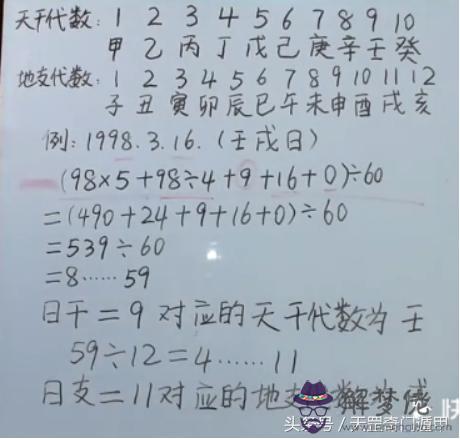 天干代数: 1 2 3 4 5 6 7 8 9 10
甲 乙 丙 丁 戊 己 庚 辛 壬 癸
地支代数: 1 2 3 4 5 6 7 8 9 10 11 12
子 丑 寅 卯 辰 巳 午 未 申 酉 戌 亥
例: 1998.3.16.(壬戌日)
(98×5+98÷4+9+16+0)÷60
=(490+24+9+16+0)÷60
=539÷60
=8……59
日干=9 对应的天干代数为 壬
59÷12=4……11
日支=11对应的地支
解梦佬
快
头条号/天罡奇门遁甲